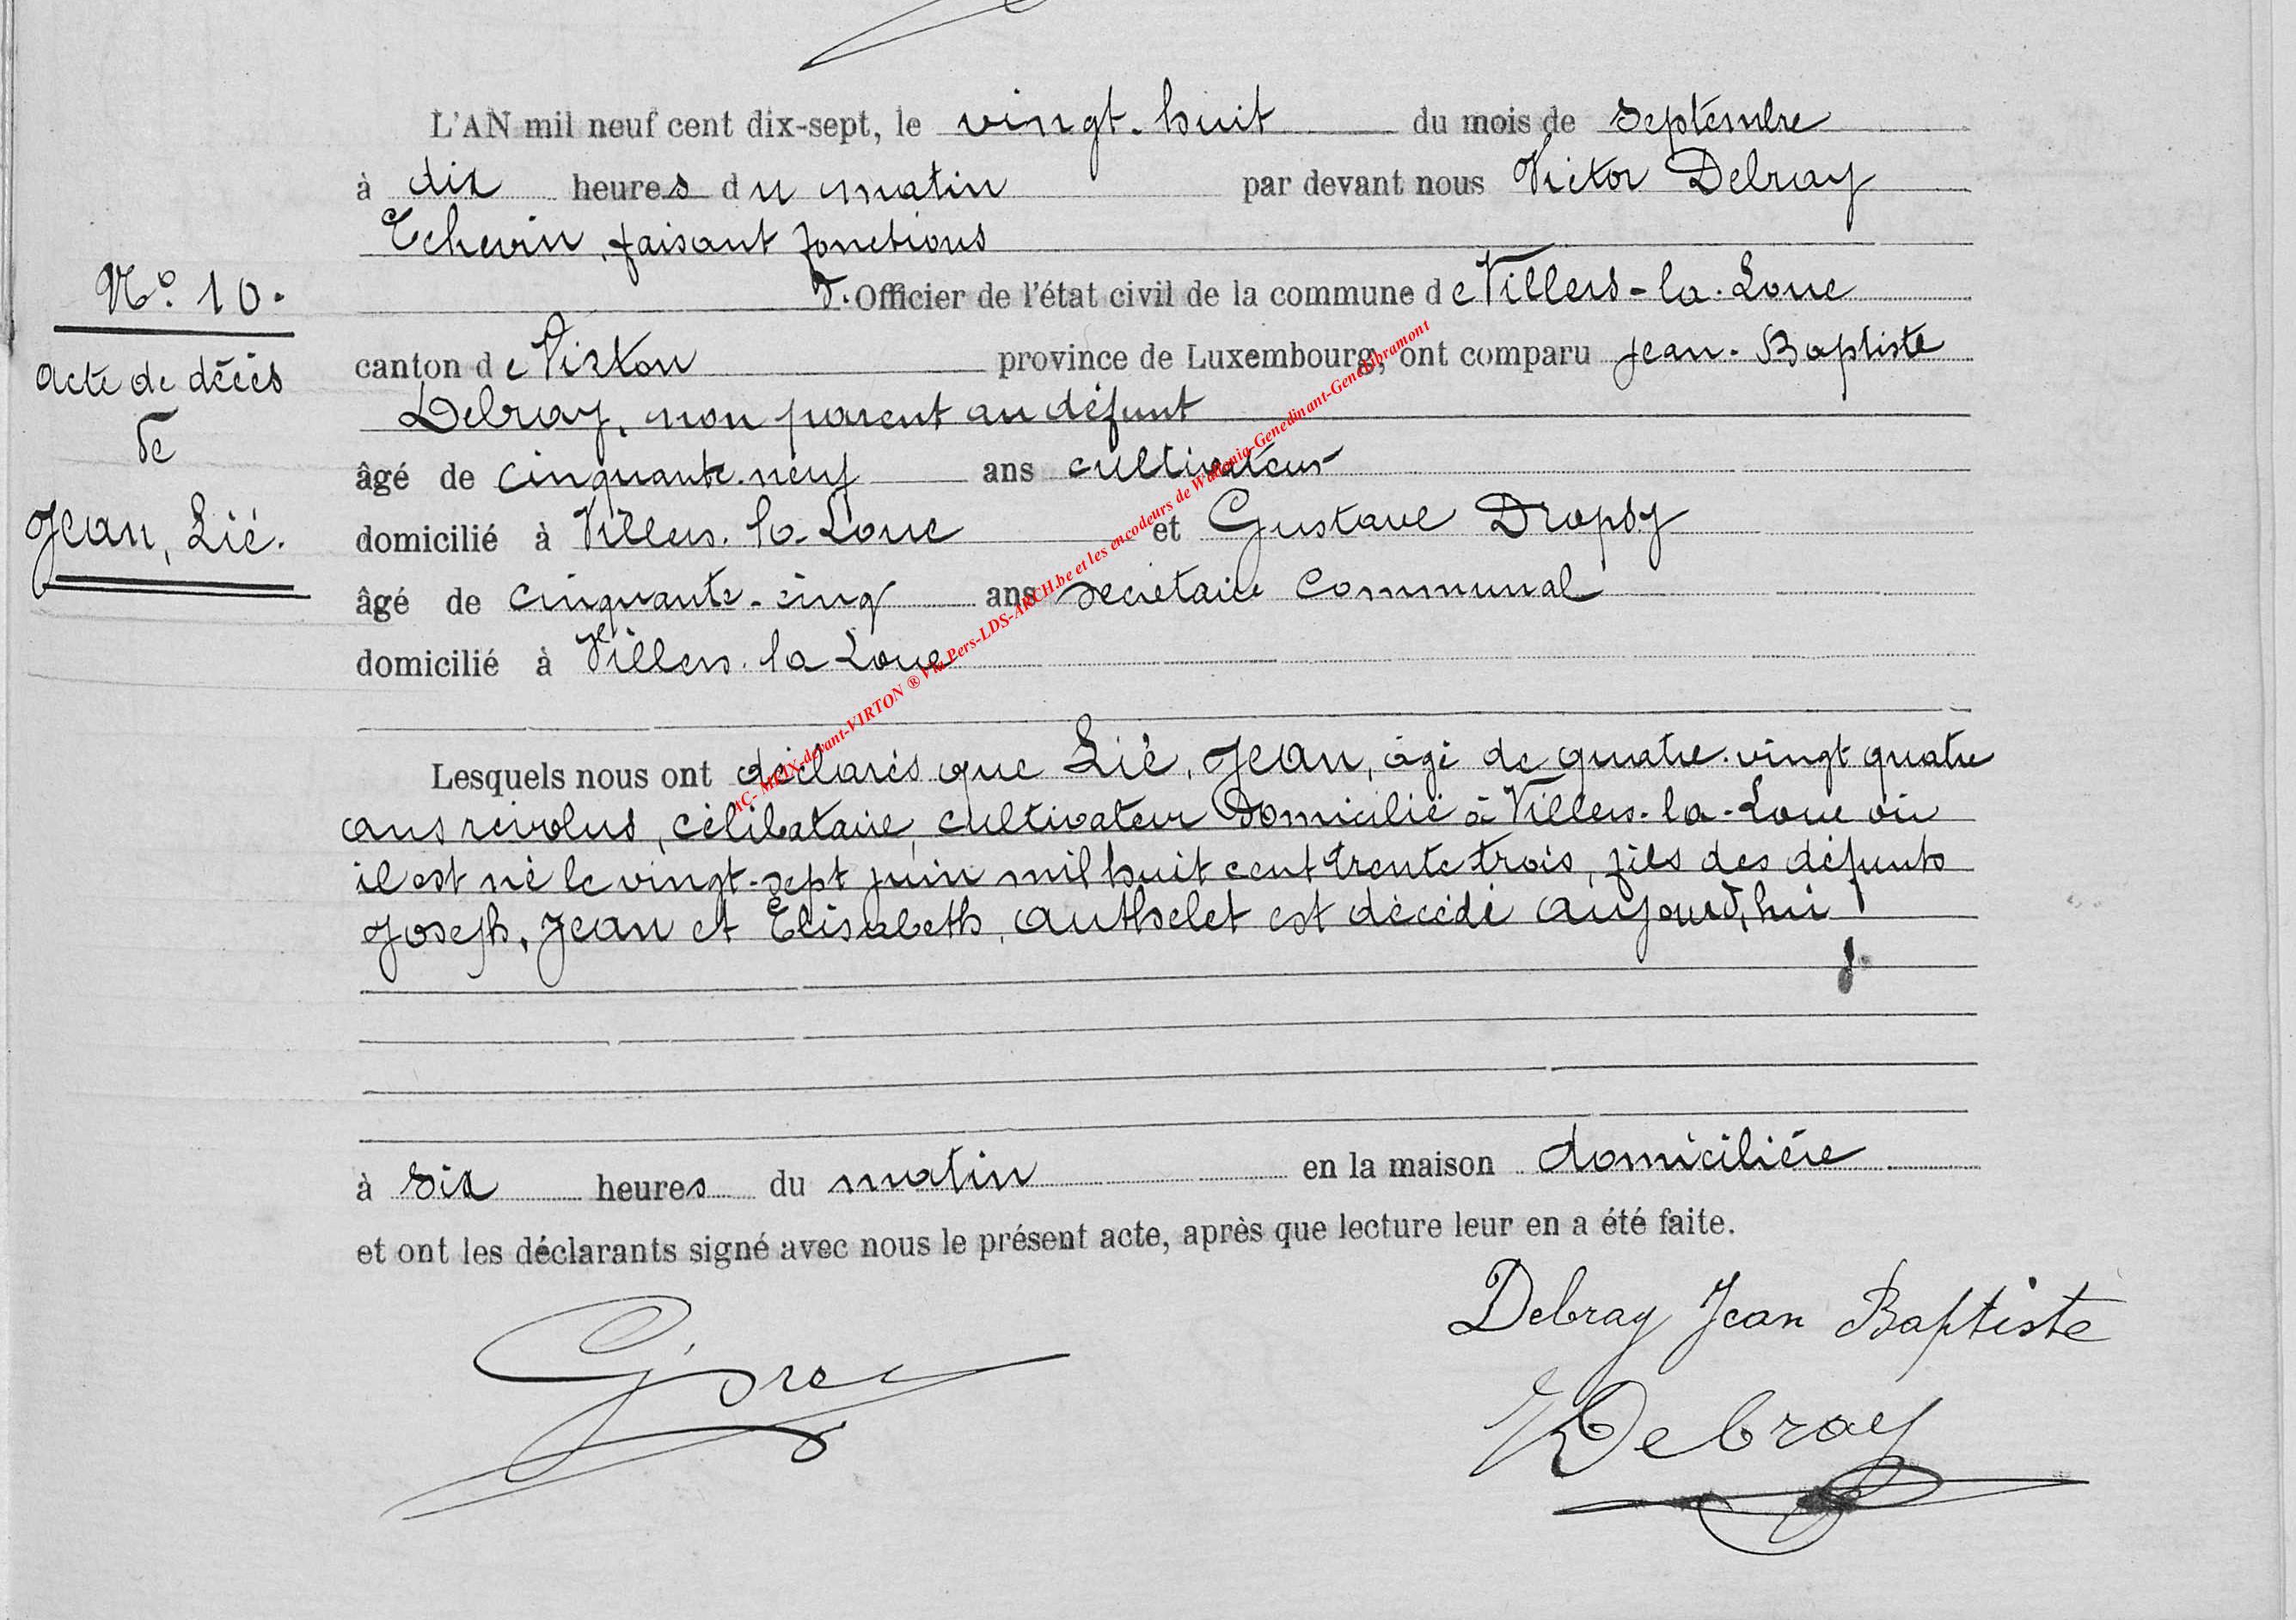 L'AN mil neuf cent dix-sept, le vingt-huit du mois de septembre
à dix heures du matin par devant nous Victor Debray
Echevin, faisant fonctions
d'Officier de l'état civil de la commune de Villers-la-Loue
N° 10.
canton de Virton province de Luxembourg, ont comparu Jean-Baptiste
Acte de décès
Debray, non parent au défunt
de
âgé de cinquante-neuf ans cultivateur
Jean, Lié.
domicilié à Villers-la-Loue et Gustave Dropsy
âgé de cinquante-cinq ans secrétaire communal
domicilié à Villers-la Loue
AC- MEIX-devant-VIRTON ® Via Pers-LDS-ARCH.be et les encodeurs de Wallonia-Genedinant-Genelibramont
Lesquels nous ont déclarés que Lié, Jean, âgé de quatre-vingt quatre
ans révolus, célibataire, cultivateur domicilié à Villers-la-Loue où
il est né le vingt-sept juin mil huit cent trente-trois, fils des défunts
Joseph, Jean et Elisabeth, Authelet est décédé aujourd'hui
à six heures du matin en la maison domicilière
et ont les déclarants signé avec nous le présent acte, après que lecture leur en a été faite.
Debray Jean Baptiste
VDebray